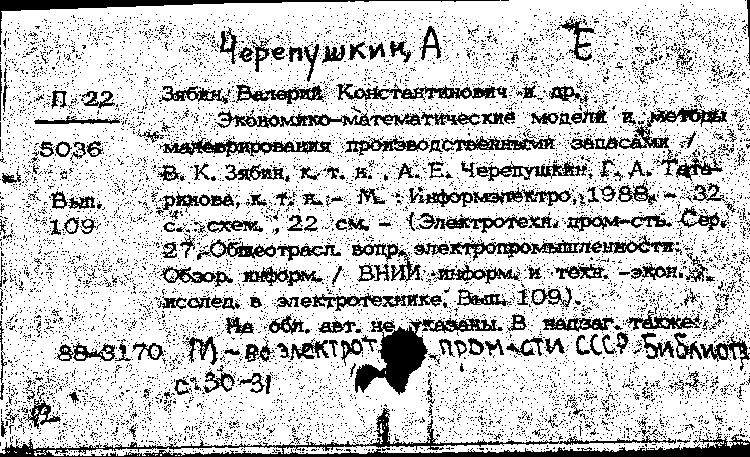 Черепушкин, А Е
П 22 Зябин, Валерий Константинович и др.
Экономико-математические модели и методы
5036 маневрирования производственными запасами /
В. К. Зябин, к. т. н., А. Е. Черепушкин, Г. А. Тата-
Вып. ринова, к. т. н. - М. : Информэлектро, 1988. - 32
109 с. : схем. ; 22 см. - (Электротехн. пром-сть. Сер.
27, Общеотрасл. вопр. электропромышленности:
Обзор. информ. / ВНИИ информ. и техн. -экон.
исслед. в электротехнике; Вып. 109).
На обл. авт. не указаны. В надзаг. также:
88-3170 М-во электрот пром-сти СССР. Библиогр
с. 30-31